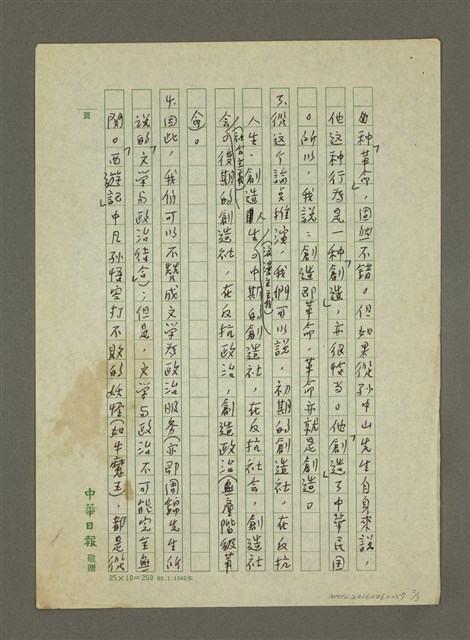 的种「革命」,固然不錯。但如果從孫中山先生自身來說,
他这种行為是一种「創造」,亦很恰当。他「創造」了中華民国
。所以,我說:創造即革命,革命亦就是創造。
3.從这个論点推演,我們可以說,初期的創造社,在反抗
人生、創造人生(浪漫主義);中期的創造社,在反抗社会,創造社
会(社会主義);後期的創造社,在反抗政治,創造政治(無產階級革
命)。
4.因此,我們可以不贊成文学為政治服務(亦即周錦先生所
說的「文学与政治结合」);但是,文学与政治不可能完全無
関。「西遊記」中凡孫悟空打不敗的妖怪(如牛魔王),都是從
頁
中華日報 敬贈
25×10=250 86.1.1040本
NMTL20160260059 2/3